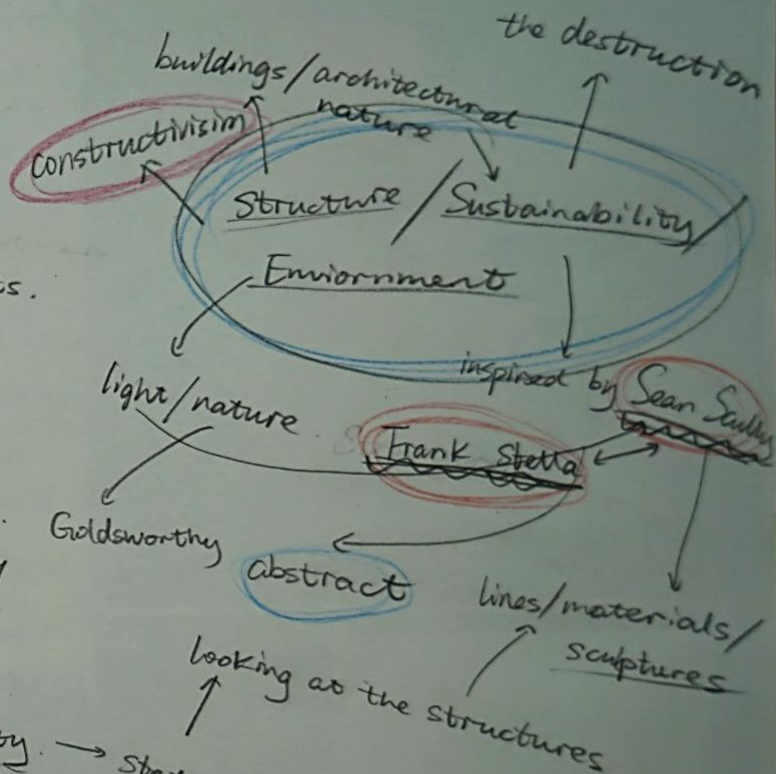 the destruction
buildings/architectural
nature
constructivisim
Structure / Sustainability /
Enviornment
s.
inspired by Sean Scully
light/nature
Frank Stella
Goldsworthy
abstract
lines/materials/
sculptures
looking at the structures